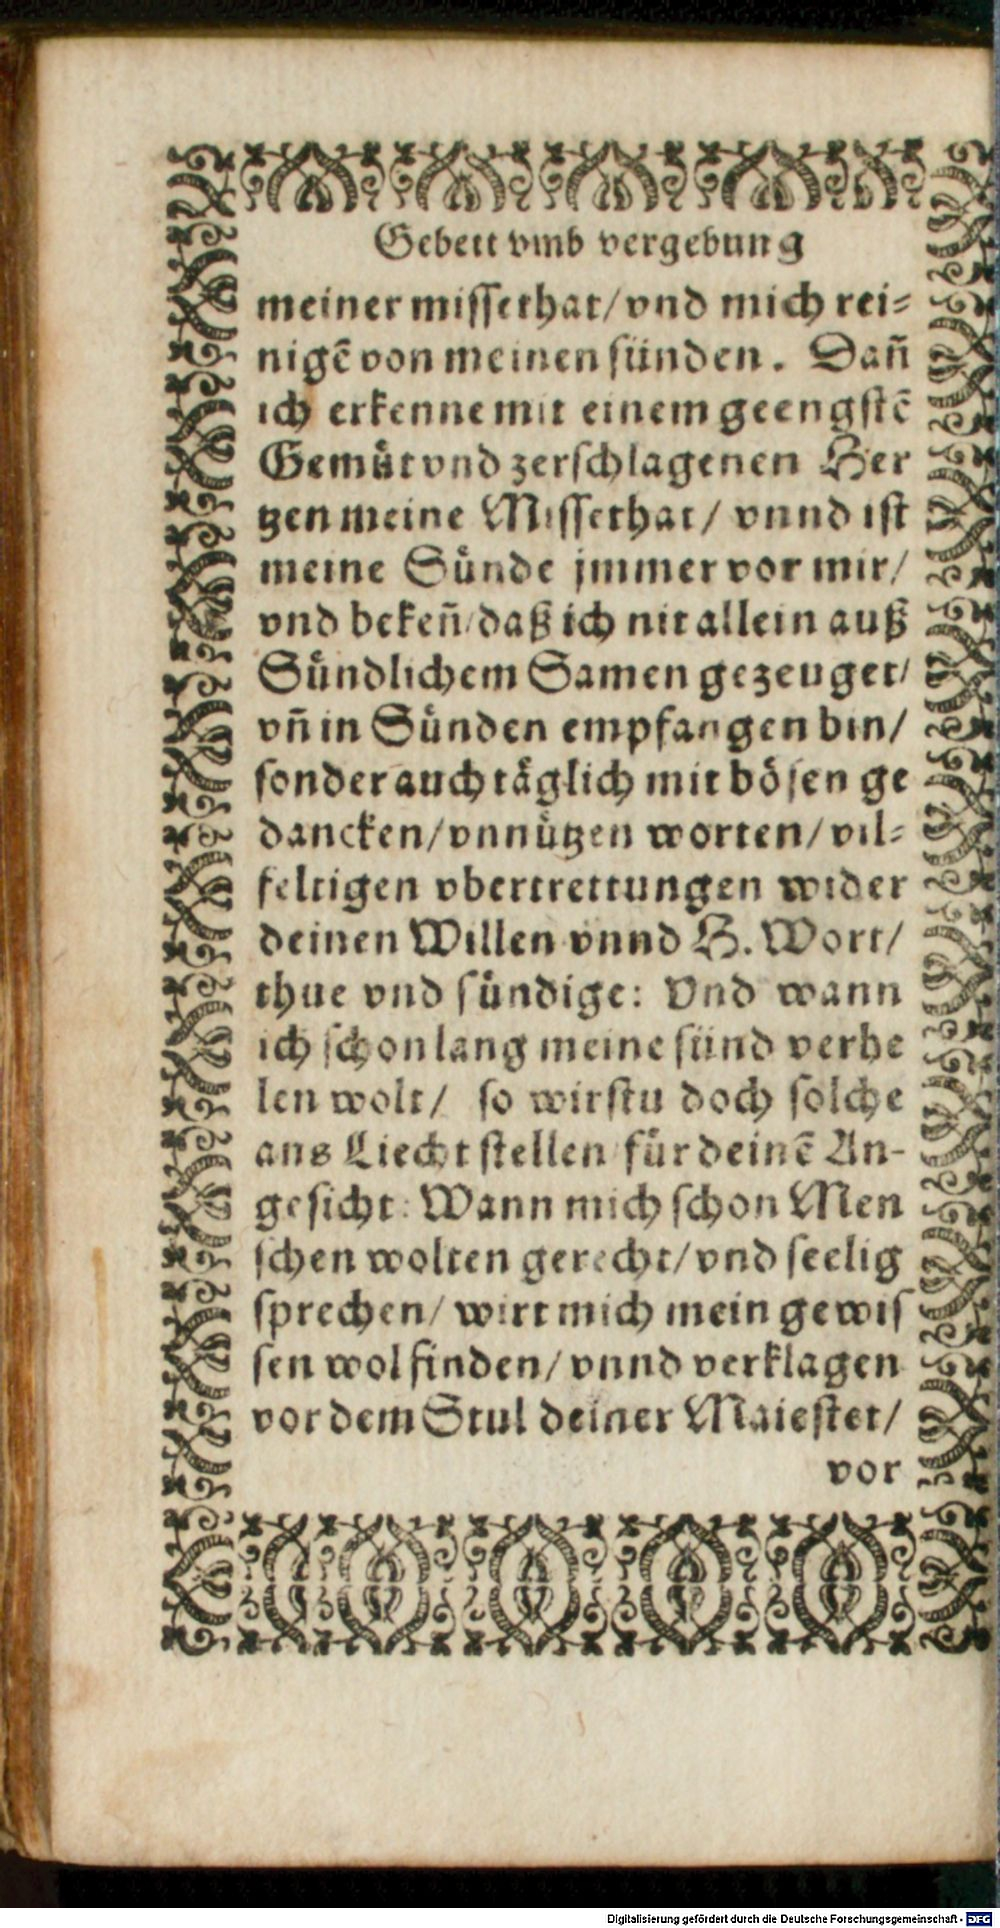 Gebett vmb vergebung
meiner missethat/vnd mich rei⸗
nigẽ von meinen sünden. Dañ
ich erkenne mit einem geengstẽ
Gemüt vnd zerschlagenen Her
tzen meine Missethat/ vnnd ist
meine Sünde jmmer vor mir/
vnd bekeñ/daß ich nit allein auß
Sündlichem Samen gezeuget/
vñ in Sünden empfangen bin/
sonder auch täglich mit bösen ge
dancken/vnnützen worten/vil⸗
feltigen vbertrettungen wider
deinen Willen vnnd H. Wort/
thue vnd sündige: Vnd wann
ich schon lang meine sünd verhe
len wolt/ so wirstu doch solche
ans Liecht stellen für deinẽ An-
gesicht: Wann mich schon Men
schen wolten gerecht/vnd seelig
sprechen/ wirt mich mein gewis
sen wol finden/vnnd verklagen
vor dem Stul deiner Maiestet/
vor
Digitalisierung gefördert durch die Deutsche Forschungsgemeinschaft - DFG